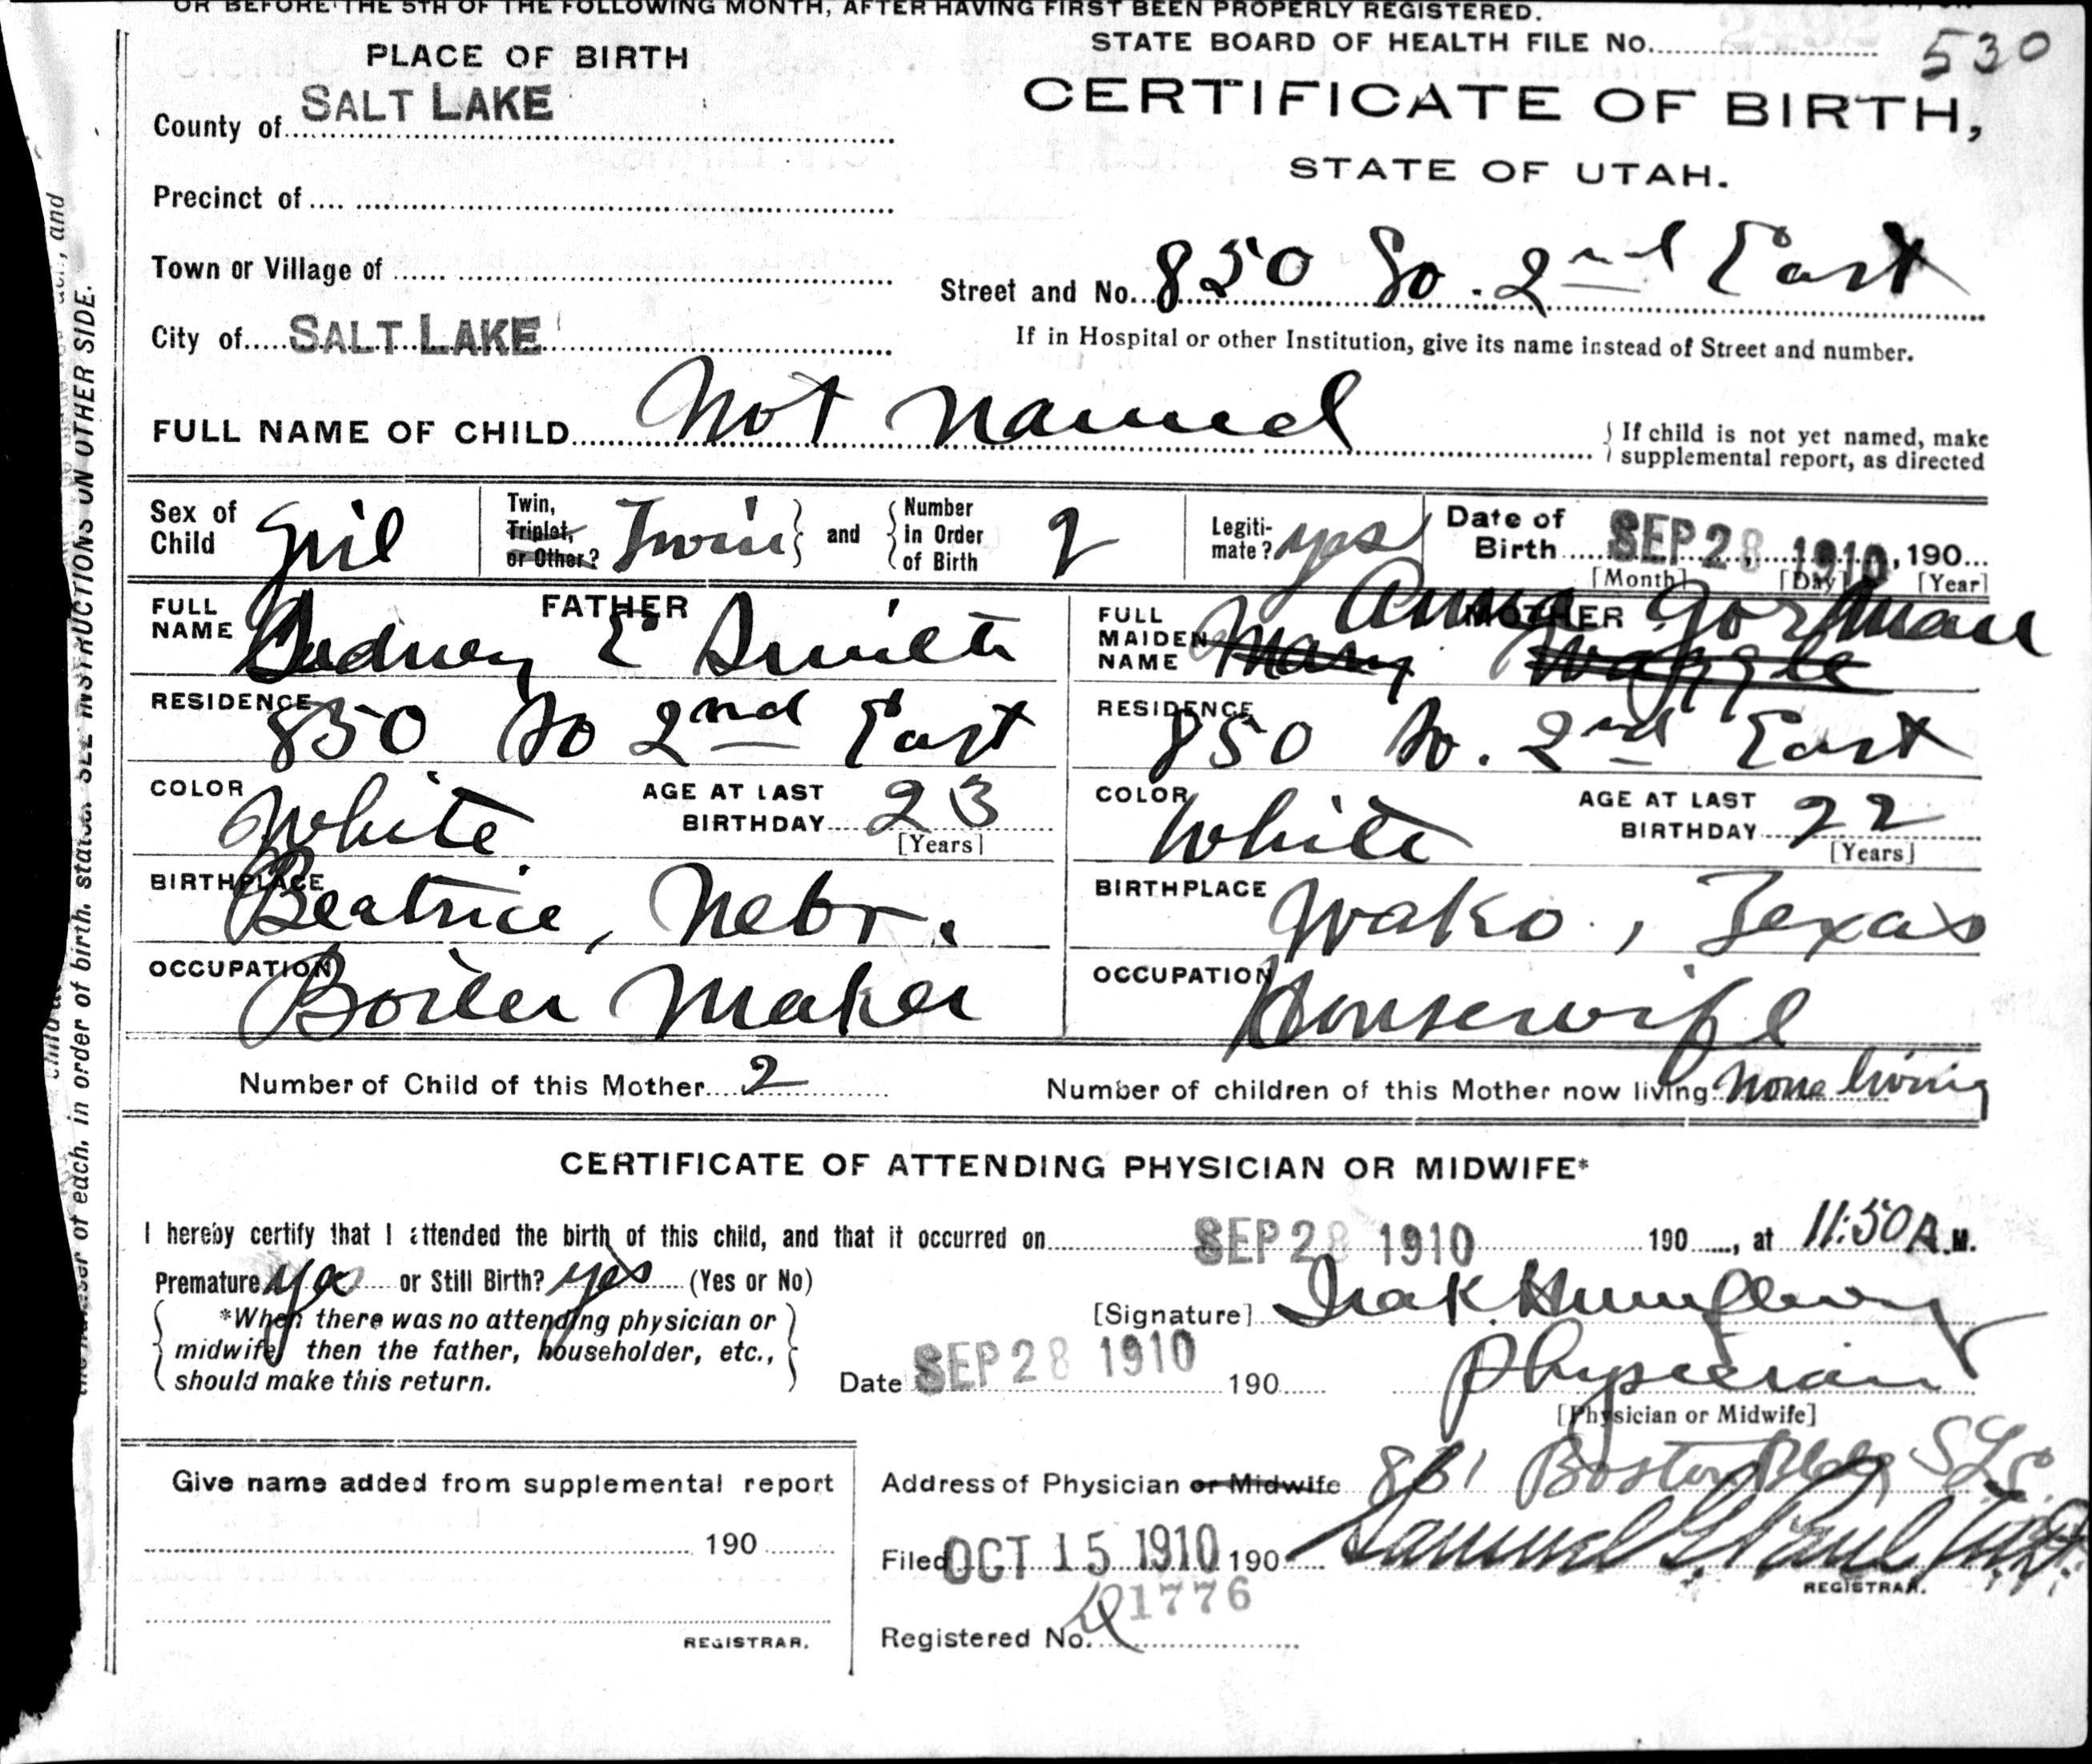 OR BEFORE THE 5TH OF THE FOLLOWING MONTH, AFTER HAVING FIRST BEEN PROPERLY REGISTERED.
PLACE OF BIRTH
STATE BOARD OF HEALTH FILE No. 530
County of SALT LAKE
CERTIFICATE OF BIRTH,
STATE OF UTAH.
Precinct of
Town or Village of
Street and No. 850 So. 2nd East
City of SALT LAKE
If in Hospital or other Institution, give its name instead of Street and number.
FULL NAME OF CHILD Not Named
If child is not yet named, make
supplemental report, as directed
Sex of Child Girl
Twin, Triplet, or Other? Twin and Number in Order of Birth 2
Legiti-mate? yes
Date of Birth SEP 28 1910, 190
[Month] [Day] [Year]
FATHER
FULL NAME Sydney E Smith
MOTHER
FULL MAIDEN NAME Mary Waggle Anna Gorman
RESIDENCE 850 So 2nd East
RESIDENCE 850 So. 2nd East
COLOR White AGE AT LAST BIRTHDAY 23 [Years]
COLOR White AGE AT LAST BIRTHDAY 22 [Years]
BIRTHPLACE Beatrice, Nebr.
BIRTHPLACE Wako, Texas
OCCUPATION Boiler Maker
OCCUPATION Housewife
Number of Child of this Mother 2
Number of children of this Mother now living None living
CERTIFICATE OF ATTENDING PHYSICIAN OR MIDWIFE*
I hereby certify that I attended the birth of this child, and that it occurred on SEP 28 1910 190, at 11:50 A.M.
Premature yes or Still Birth? yes (Yes or No)
*When there was no attending physician or
midwife, then the father, householder, etc.,
should make this return.
[Signature] Humphrey
Date SEP 28 1910 190
Physician
[Physician or Midwife]
Give name added from supplemental report
190
REGISTRAR.
Address of Physician or Midwife Boston Bldg
Filed OCT 15 1910 190 Samuel G. Paul
REGISTRAR.
Registered No. 1776
in order of birth, stated. SEE INSTRUCTIONS ON OTHER SIDE.